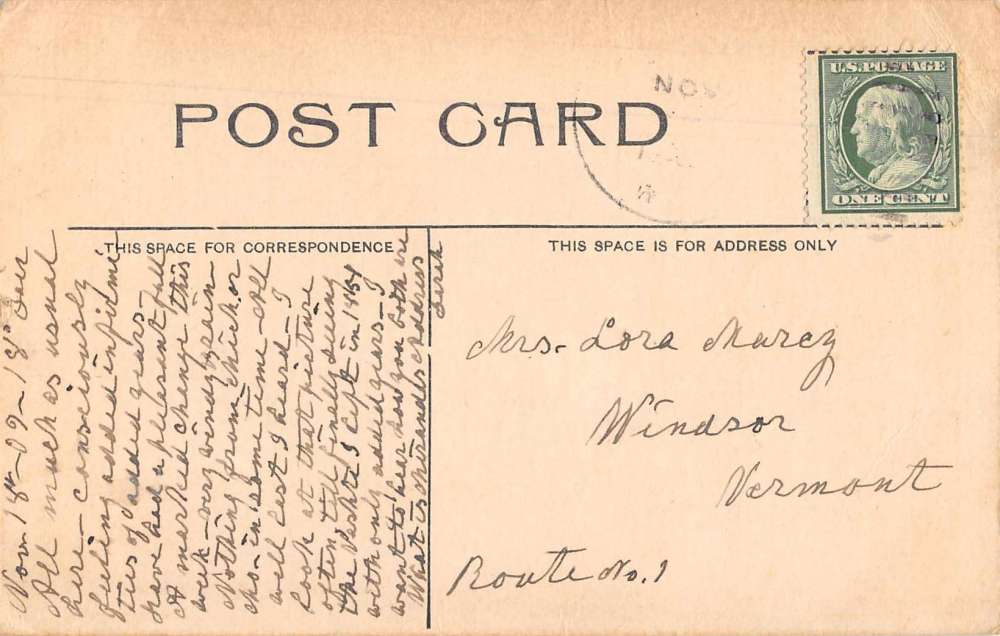 POST CARD
NOV
U.S. POSTAGE
ONE CENT
THIS SPACE FOR CORRESPONDENCE
THIS SPACE IS FOR ADDRESS ONLY
Nov. 18 - 09 - 18°
All much as usual
here - consciously
feeling added infirmi
ties of added years -
have had a pleasant fall
A marked change this
week - very windy again
Nothing from Chick or
in some time - all
well last I heard - I
Look at that picture
often, till finally seeing
the I left in
with only added years - I
want to hear how you both are
What is address
Sarah
Mrs. Lora Marcy
Windsor
Vermont
Route No. 1